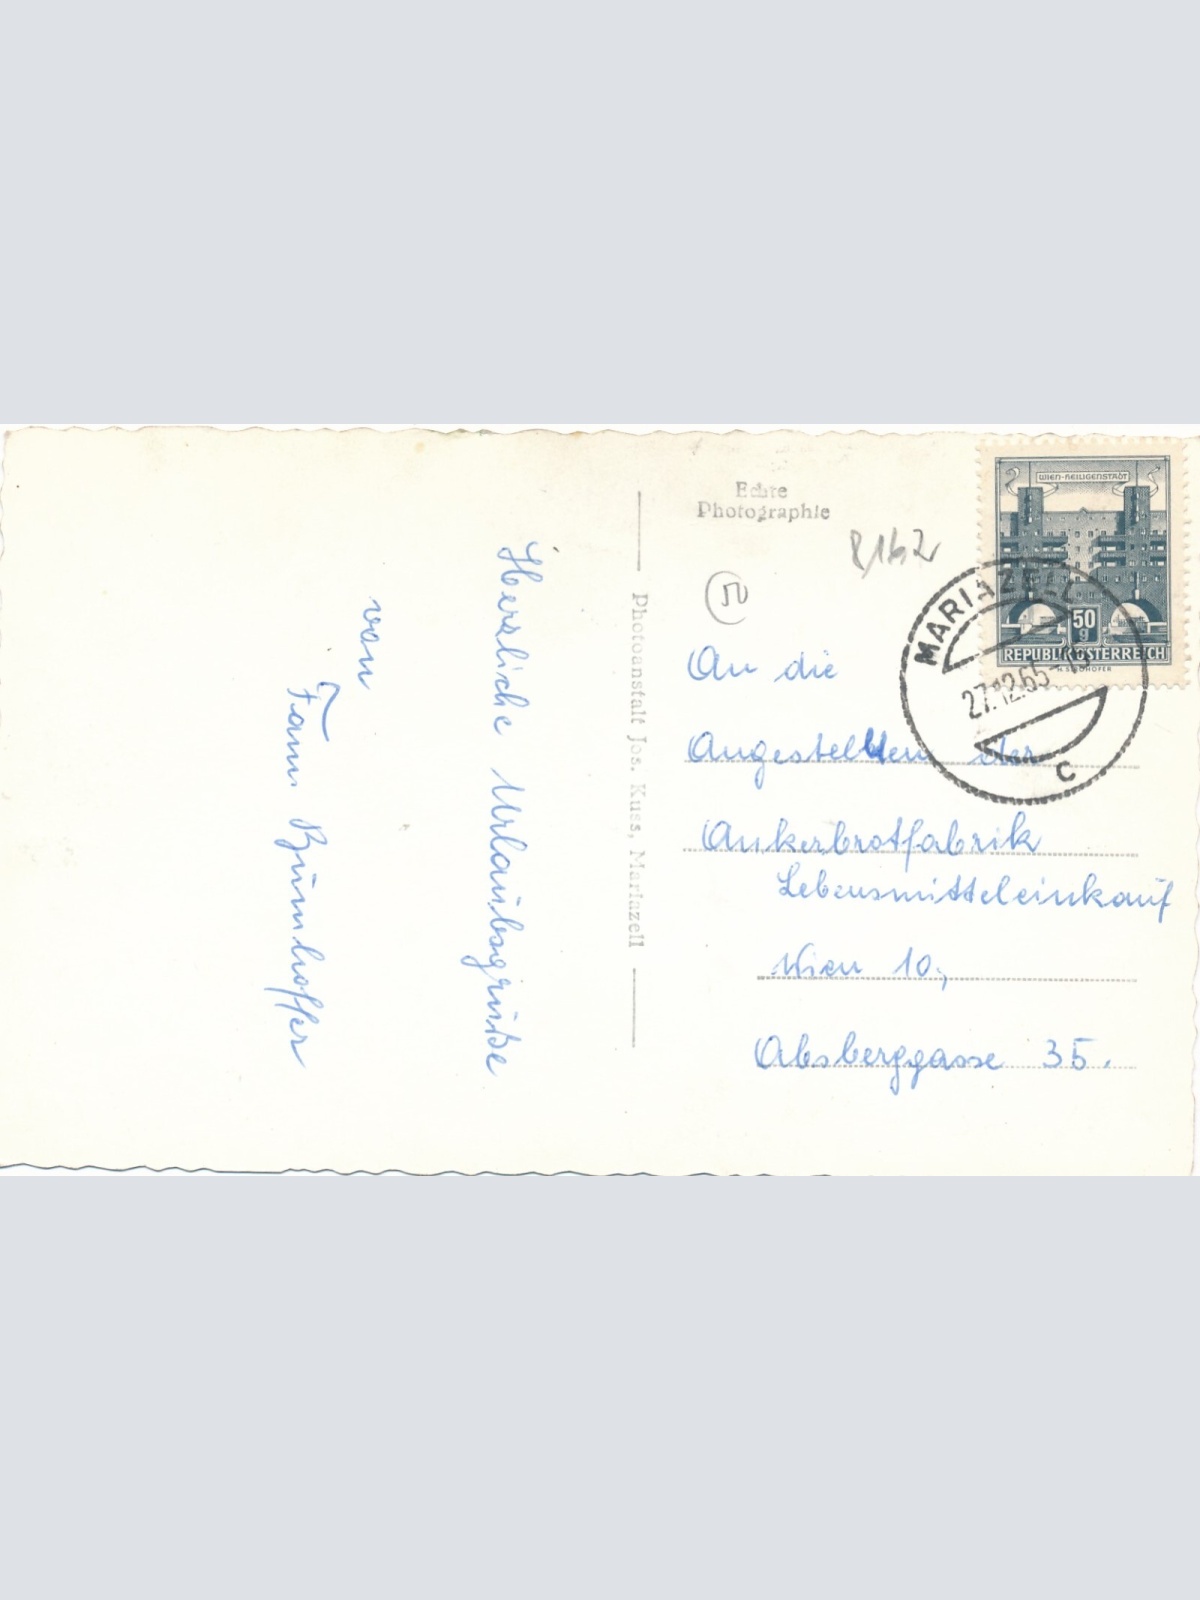 Herzliche Urlaubsgrüße
von
Fam.
Photoanstalt Jos. Kuss, Mariazell
Echte
Photographie
50
An die
Angestellten der
Ankerbrotfabrik
Lebensmitteleinkauf
Wien 10,
Absberggasse 35.
WIEN-HEILIGENSTADT
50
g
REPUBLIK ÖSTERREICH
MARIAZELL
27.12.65
c